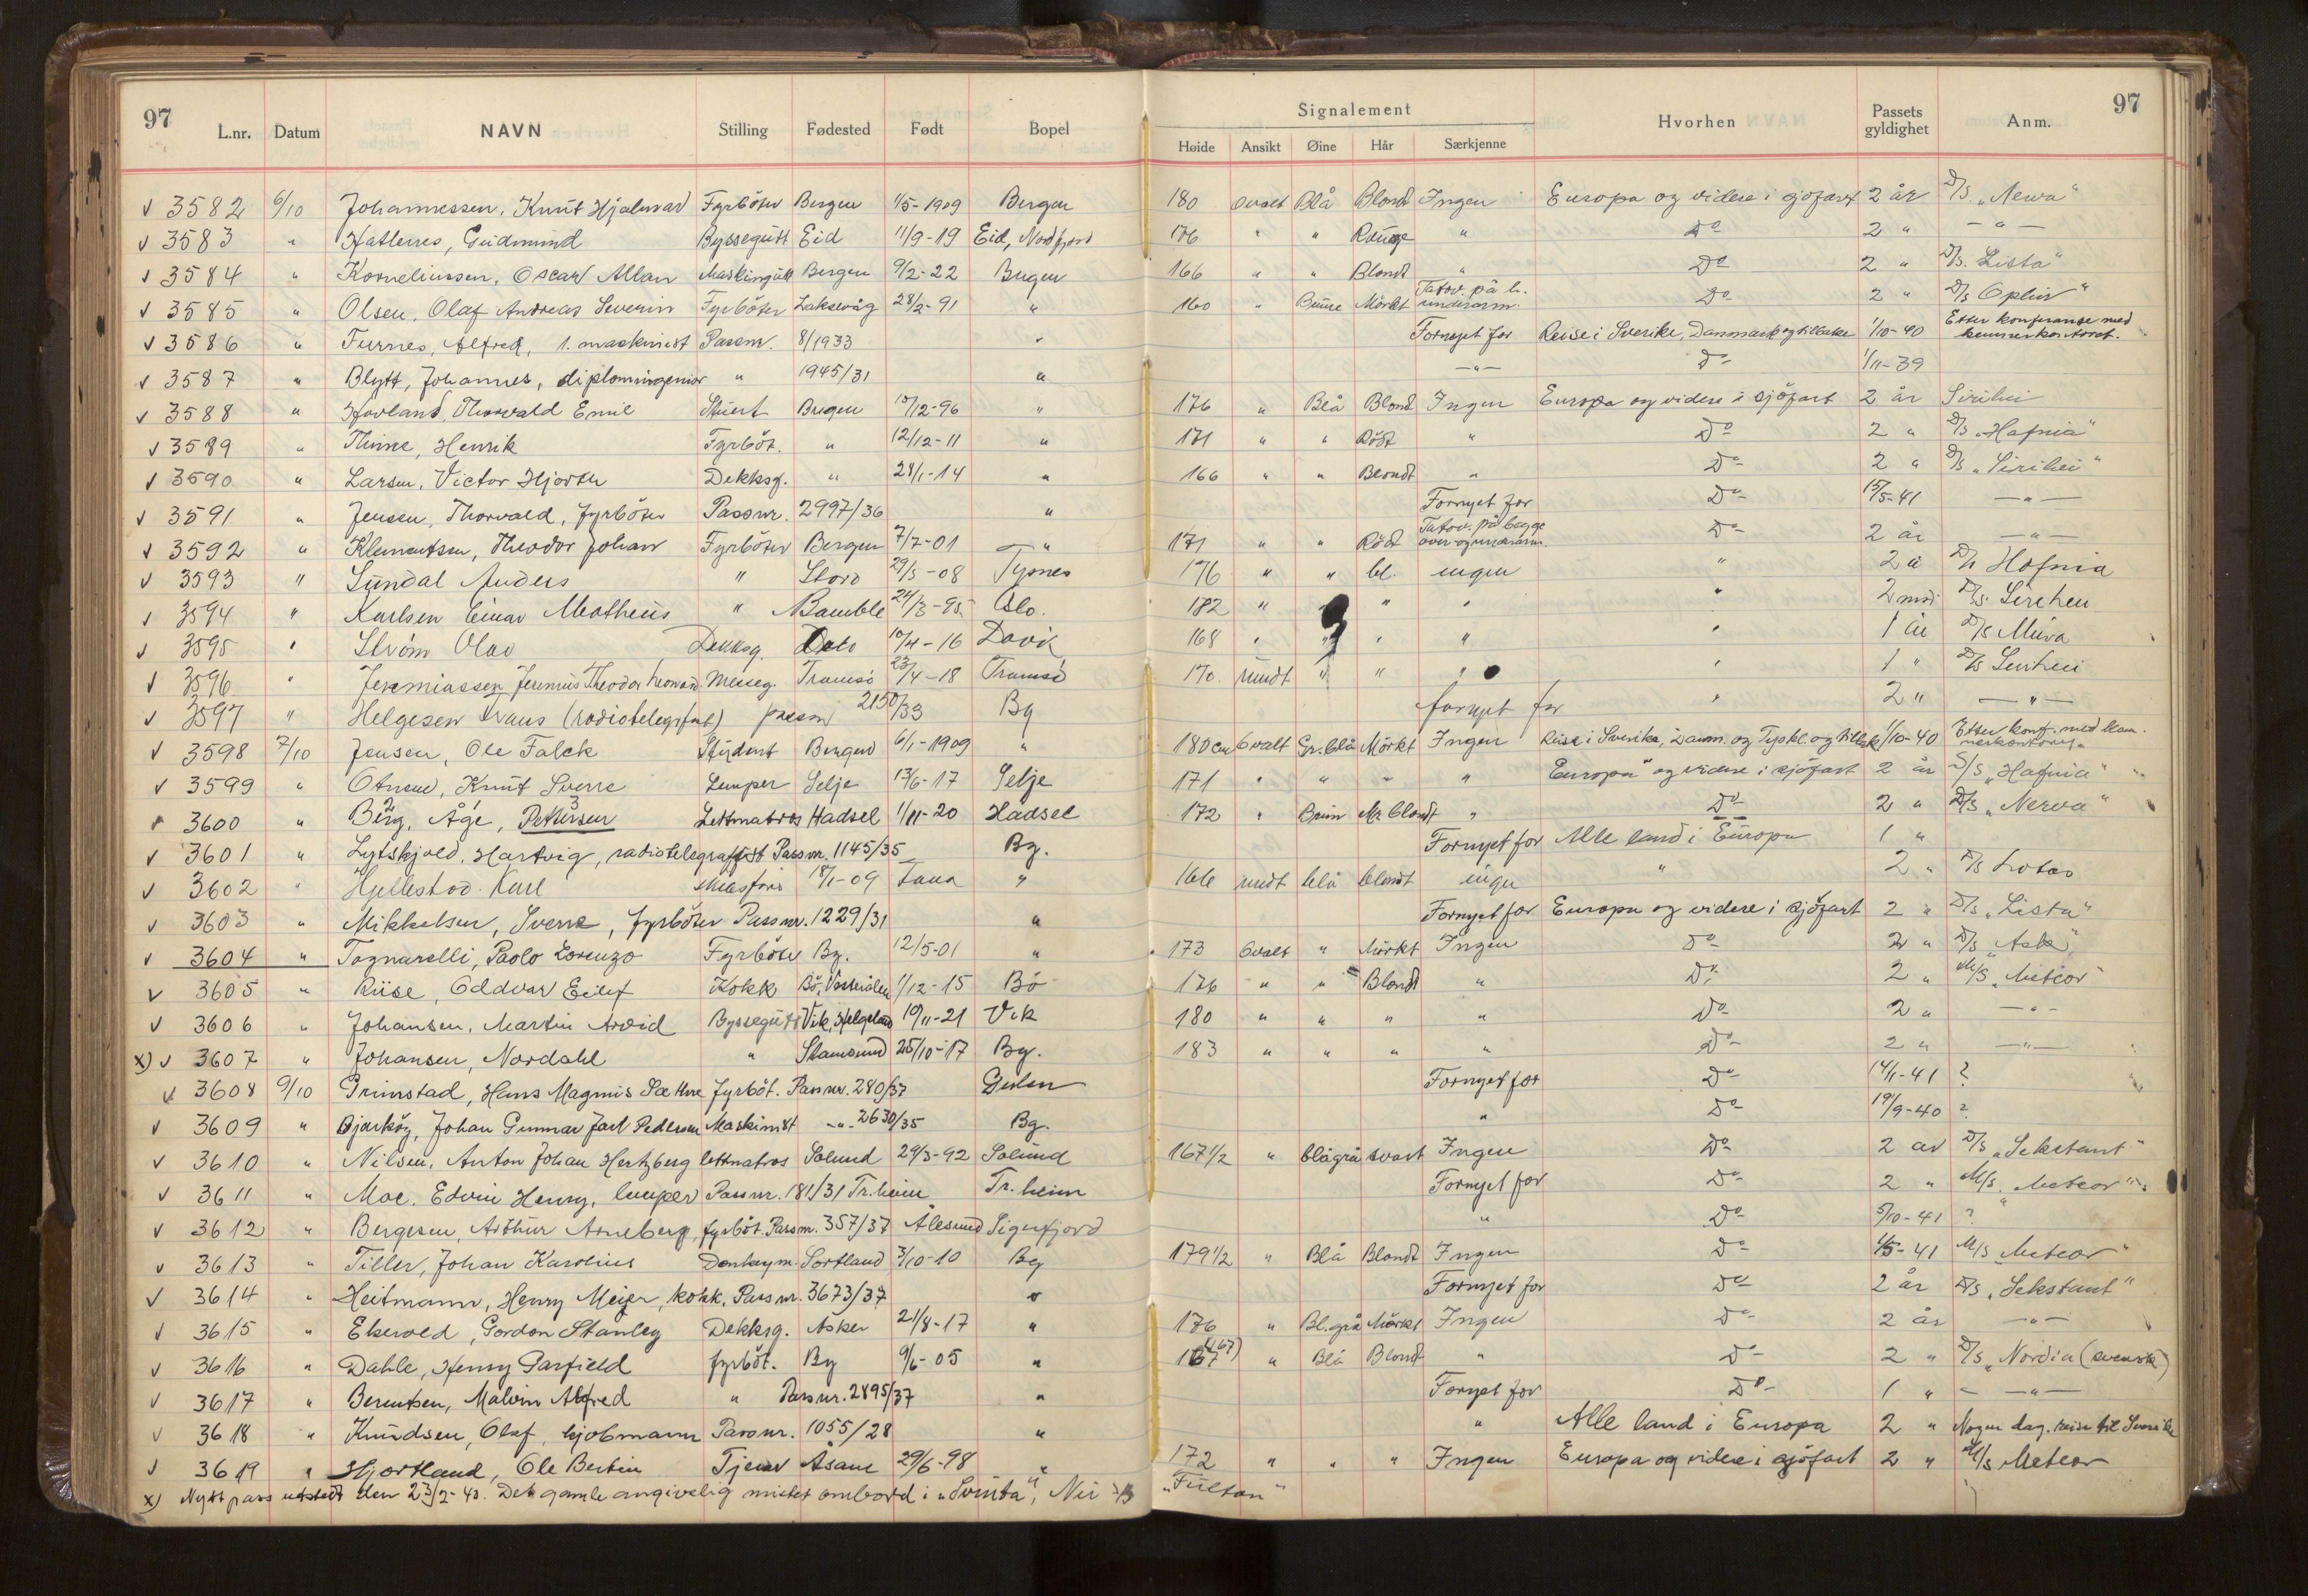 97
L.nr. Datum NAVN Stilling Fødested Født Bopel
Signalement
Høide Ansikt Øine Hår Særkjenne
Hvorhen
Passets gyldighet
Anm.
97
√ 3582 6/10 Johannessen, Knut Hjalmar Fyrböter Bergen 1/5-1909 Bergen 180 Ovalt Blå Blond Ingen Europa og videre i sjøfart 2 år D/S. „Newa"
√ 3583 " Hatlenes, Gudmund Byssegutt Eid 11/9-19 Eid, Nordfjord 176 " " " Do 2 " — " —
√ 3584 " Korneliussen, Oscar Allan Maskingutt Bergen 9/2-22 Bergen 166 " " Blondt " Do 2 " D/S. Lista"
√ 3585 " Olsen, Olaf Andreas Severin Fyrböter Laksevåg 28/2-91 " 160 " Brune Mörkt Tatov. på h. underarm. Do 2 " D/S Ophir"
√ 3586 " Furnes, Alfred, 1. maskinist Passnr. 8/1933 " Fornyet for Reise i Sverike, Danmark og tilbake 1/10-40 Etter konferanse med kammerskontoret.
√ 3587 " Blytt, Johannes, diplomingeniør " 1945/31 " —"— Do 1/11-39
√ 3588 " Hovland, Thorvald Emil Stuert Bergen 10/12-96 " 176 " Blå Blond Ingen Europa og videre i sjöfart 2 år Sirihei
√ 3589 " Thime, Henrik Fyrböt. " 12/12-11 " 171 " " Rödt " Do 2 " D/S „Hafnia"
√ 3590 " Larsen, Victor Hjorth Dekksg. " 28/1-14 " 166 " " Blondt " Do 2 " D/S „Sirihei"
√ 3591 " Jensen, Thorvald, fyrböter Passnr. 2997/36 " Fornyet for Do 15/5-41 —"—
√ 3592 " Klementsen, Theodor Johan Fyrböter Bergen 7/7-01 " 171 " " Rödt Tatov. på begge over- og underarm. Do 2 år —"—
√ 3593 " Sundal Anders " Stord 29/3-08 Tysnes 176 " " bl. ingen " 2 å D/S Hafnia
√ 3594 " Karlsen Einar Matheus " Bamble 24/3-95 Oslo. 182 " " " " 2 mnd. D/S. Sirehei
√ 3595 " Ström Olav Dekksg. Oslo 10/4-16 Davik 168 " " " " " 1 år D/S Mira
√ 3596 " Jeremiassen Jeremias Theodor Leonard. Messeg. Tromsö 23/4-18 Tromsö 170. rundt " " " " 1 " D/S Sirihei
√ 3597 " Helgesen Hans (radiotelegrafist) passnr 2150/33 Bg fornyet for " 2 " —"—
√ 3598 7/10 Jensen, Ole Falck Student Bergen 6/1-1909 " 180 cm Ovalt Gr.blå Mörkt Ingen Reise i Sverike, Danm. og Tyskl. og tilbake 1/10-40 Etter konf. med kammerkontoret
√ 3599 " Otnem, Knut Sverre Lemper Selje 13/6-17 Selje 171 " " " " Europa og videre i sjöfart 2 år D/S „Hafnia"
3600 " Berg, Åge, Pettersen Lettmatros Hadsel 1/11-20 Hadsel 172 " Brun M. blondt " Do 2 " D/S „Nerva"
√ 3601 " Lytskjold, Hartvig, radiotelegrafist Passnr. 1145/35 Bg. Fornyet for Alle land i Europa 1 "
√ 3602 " Hjellestad Karl 18/1-09 Fana " 166 rundt blå blondt ingen " 2 " D/S Lotos
√ 3603 " Mikkelsen, Sverre, fyrböter Passnr. 1229/31 " Fornyet for Europa og videre i sjöfart 2 " D/S „Lista"
√ 3604 " Tognarelli, Paolo Lorenzo Fyrböter Bg. 12/5-01 " 173 Ovalt " Mörkt Ingen Do 2 " D/S „Ask"
√ 3605 " Riise, Oddvar Eilef Kokk Bö, Vesterålen 1/12-15 Bö 176 " " Blondt " Do 2 " M/S „Meteor"
√ 3606 " Johansen, Martin Arvid Byssegutt Vik, Helgeland 19/11-21 Vik 180 " " " " Do 2 " —"—
x) √ 3607 " Johansen, Nordahl " Stamsund 25/10-17 Bg. 183 " " " " Do 2 " —"—
√ 3608 9/10 Grimstad, Hans Magnus Sæthre fyrböt. Passnr. 280/37 Gulen Fornyet for Do 14/1-41 ?
√ 3609 " Bjarköy, Johan Gunnar Jarl Pedersen Maskinist —"— 2630/35 Bg. " Do 19/9-40 ?
√ 3610 " Nilsen, Anton Johan Hertzberg lettmatros Solund 29/3-92 Solund 167 1/2 " blågrå svart Ingen Do 2 år D/S „Sekstant"
√ 3611 " Moe, Edvin Henry, lemper Passnr. 181/31 Tr.heim Tr.heim Fornyet for Do 2 " M/S. „Meteor"
√ 3612 " Bergesen, Arthur Arneberg, fyrböt. Passnr. 357/37 Ålesund Sigerfjord " Do 5/10-41 ?
√ 3613 " Tiller, Johan Karolius Donkeym. Sortland 3/10-10 Bg 179 1/2 " Blå Blondt Ingen Do 1/5-41 M/S „Meteor"
√ 3614 " Heitmann, Henry Meijer, kokk, Passnr. 3673/37 " Fornyet for Do 2 år D/S „Sekstant"
√ 3615 " Ekerold, Gordon Stanley Dekksg. Asker 21/8-17 " 176 " Bl.grå Mörkt Ingen Do 2 år —"—
√ 3616 " Dahle, Henry Garfield fyrböt. Bg 9/6-05 " 167 (167) " Blå Blondt " Do 2 " D/S „Nordia (svensk)
√ 3617 " Berentsen, Malvin Alfred " Passnr. 2895/37 " Fornyet for Do 1 " — —"—
√ 3618 " Knudsen, Olaf, sjömann Passnr. 1055/28 " " Alle land i Europa 2 " Nogen dag. reise til Sverike
√ 3619 " Hjortland, Ole Bertin Tjener Åsane 29/6-98 " 172 " " " Ingen Europa og videre i sjöfart 2 " M/S Meteor
x) Nytt pass utstedt den 23/2-43. Det gamle angivelig mistet ombord i „Svinta", Nu D/S „Fulton"